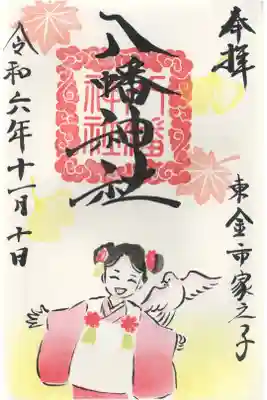 奉拝
東金市家之子
八幡神社
令和六年十一月十日